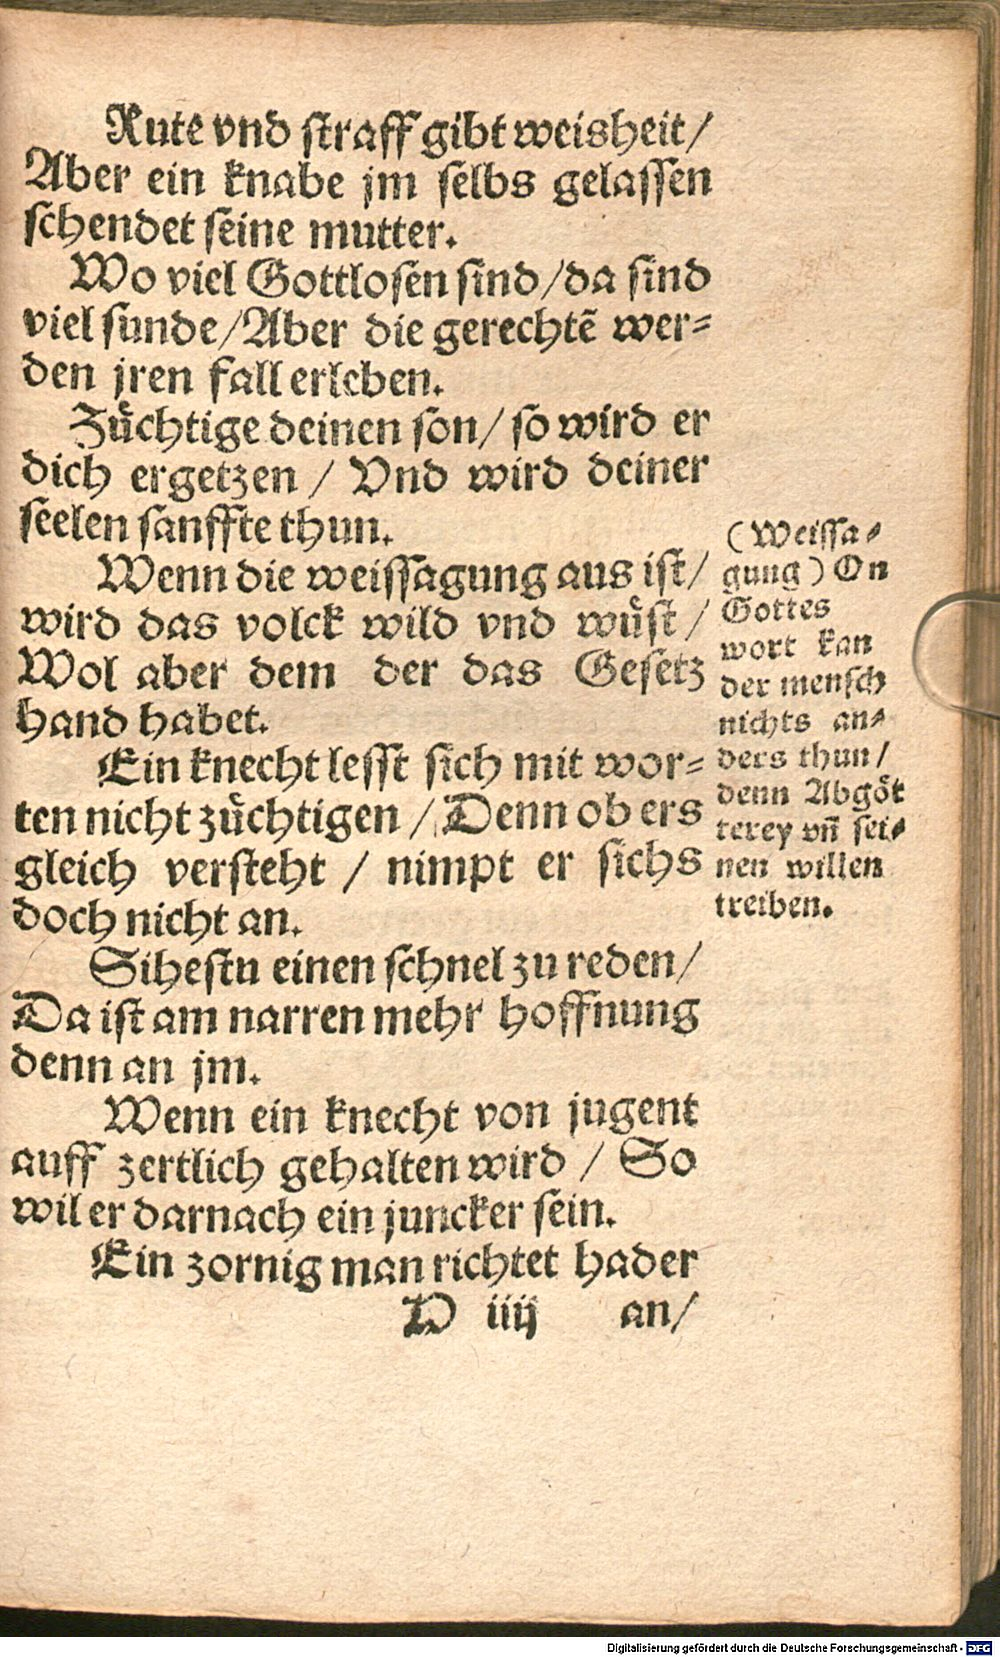 Rute vnd straff gibt weisheit/
Aber ein knabe jm selbs gelassen
schendet seine mutter.
Wo viel Gottlosen sind/da sind
viel sunde/Aber die gerechtẽ wer⸗
den jren fall erleben.
Züchtige deinen son/ so wird er
dich ergetzen / Vnd wird deiner
seelen sanffte thun.
Wenn die weissagung aus ist/
wird das volck wild vnd wüst/
Wol aber dem der das Gesetz
hand habet.
Ein knecht lesst sich mit wor⸗
ten nicht züchtigen / Denn ob ers
gleich versteht / nimpt er sichs
doch nicht an.
Sihestu einen schnel zu reden/
Da ist am narren mehr hoffnung
denn an jm.
Wenn ein knecht von jugent
auff zertlich gehalten wird / So
wil er darnach ein juncker sein.
Ein zornig man richtet hader
D iiij an/
(Weissa⸗
gung) On
Gottes
wort kan
der mensch
nichts an⸗
ders thun/
denn Abgöt
terey vñ sei⸗
nen willen
treiben.
Digitalisierung gefördert durch die Deutsche Forschungsgemeinschaft - DFG